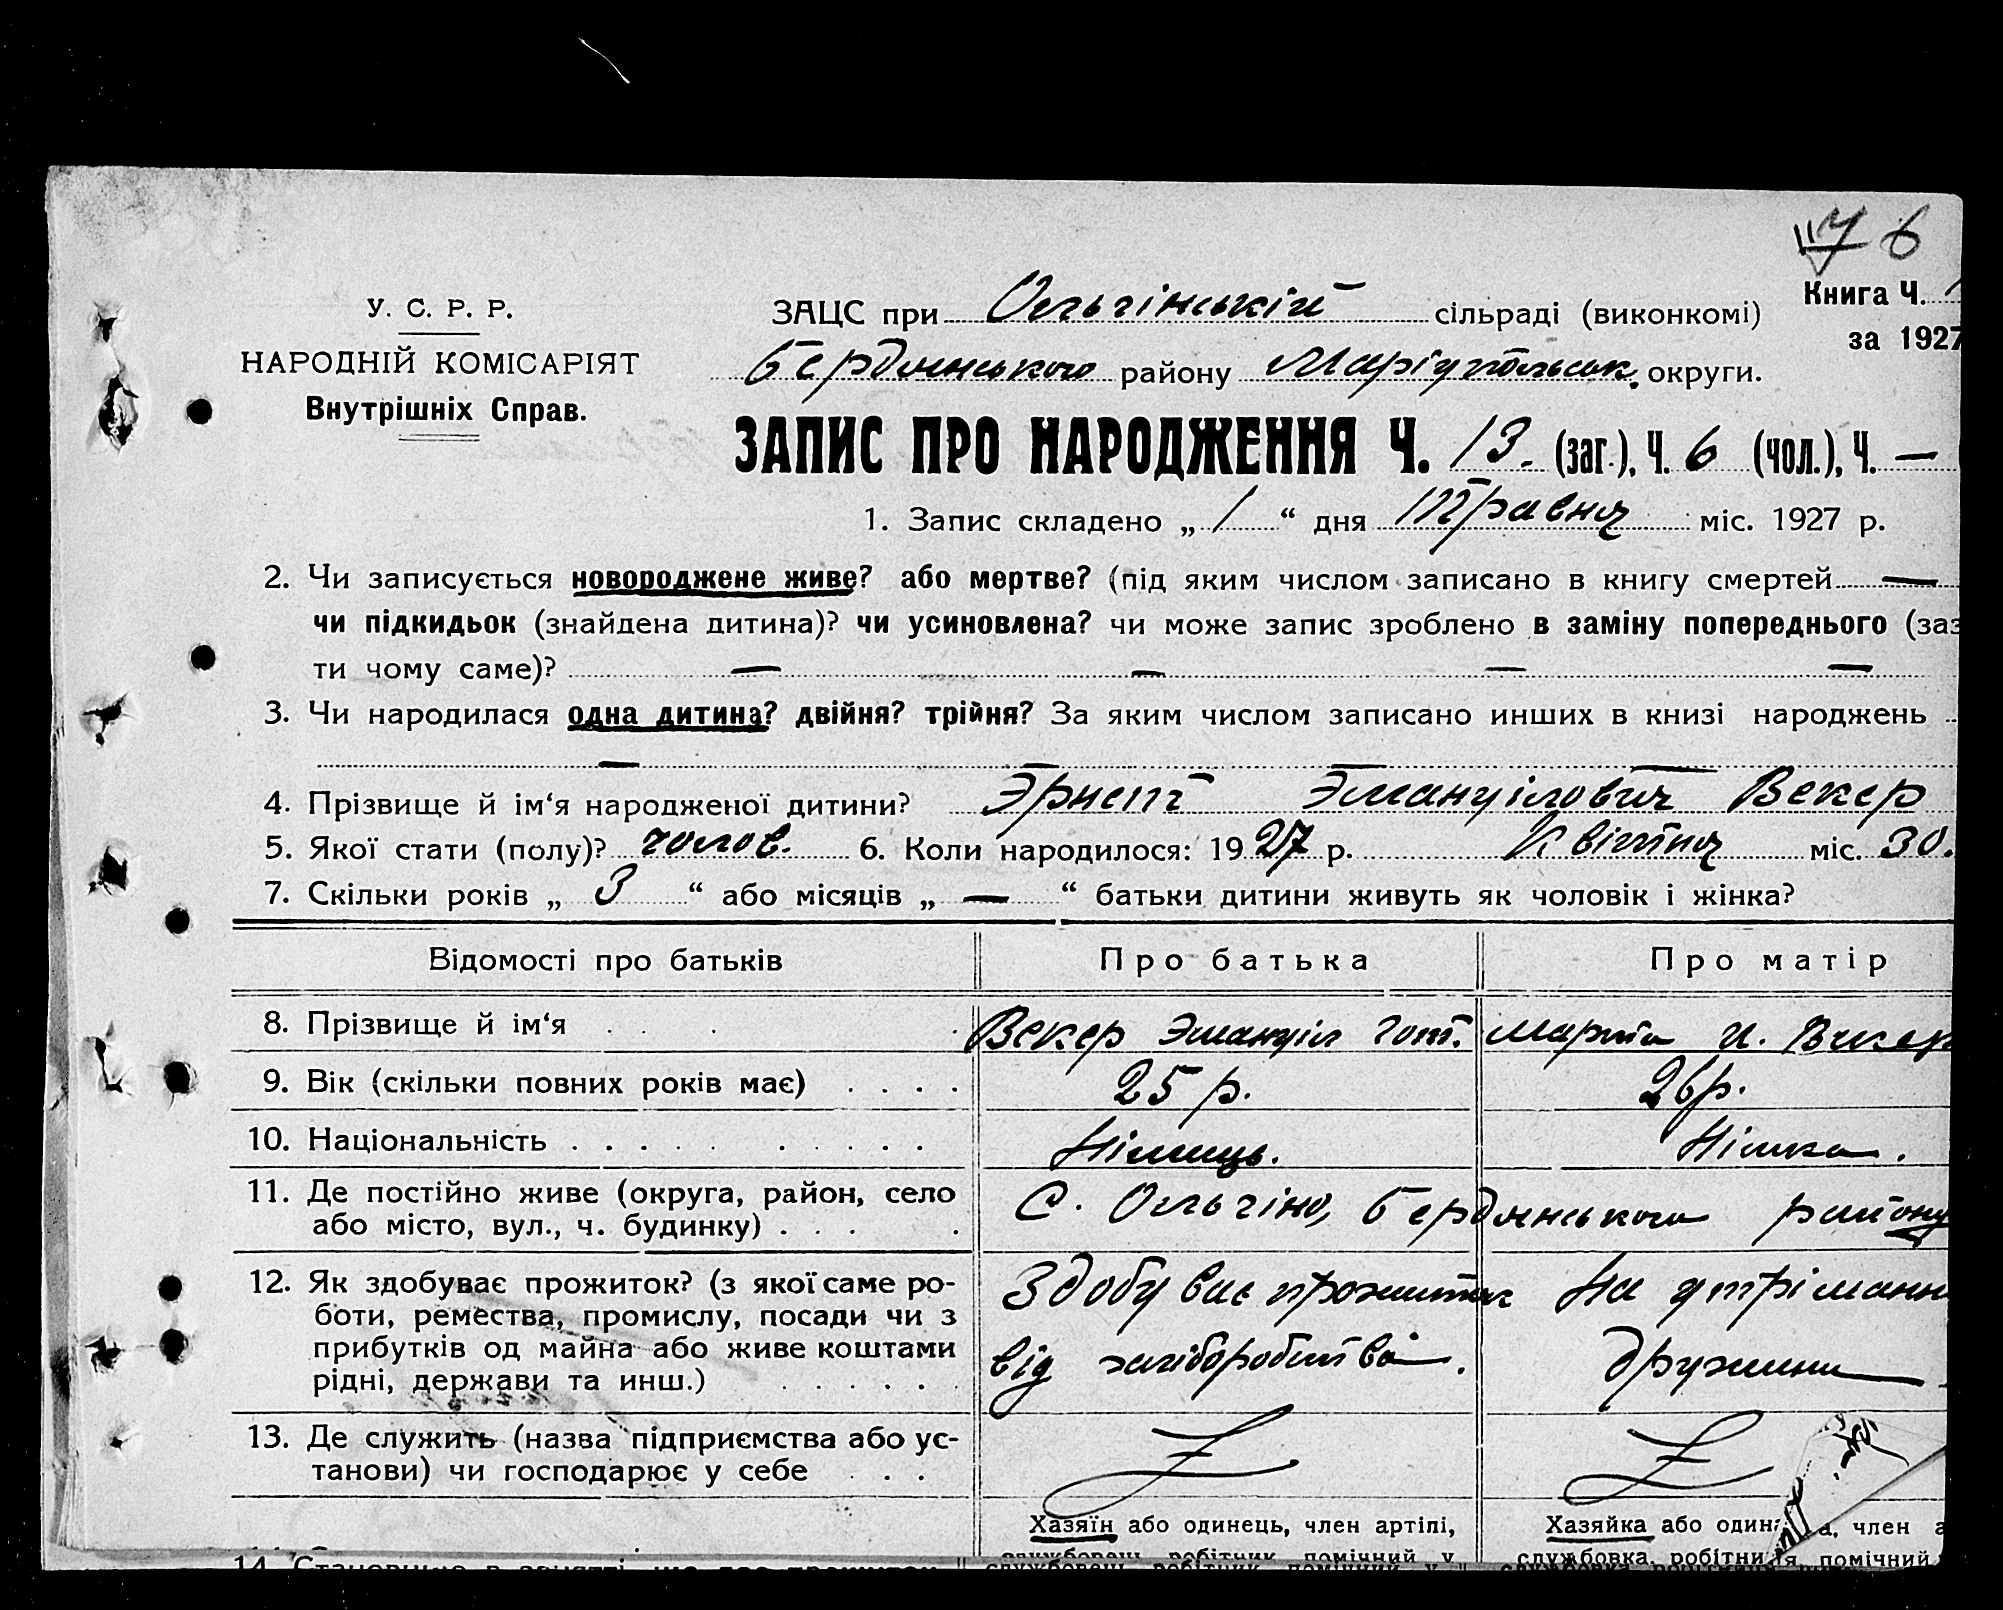 76
У. С. Р. Р.
НАРОДНІЙ КОМІСАРІЯТ
Внутрішніх Справ.
Книга Ч.
за 1927
ЗАЦС при Ольгінській сільраді (виконкомі)
Бердянського району Маріупольськ. округи.
ЗАПИС ПРО НАРОДЖЕННЯ Ч. 13. (заг.), Ч. 6 (чол.), Ч. —
1. Запис складено „ 1 “ дня травня міс. 1927 р.
2. Чи записується новороджене живе? або мертве? (під яким числом записано в книгу смертей —
чи підкидьок (знайдена дитина)? чи усиновлена? чи може запис зроблено в заміну попереднього (заз
ти чому саме)? — — — —
3. Чи народилася одна дитина? двійня? трійня? За яким числом записано инших в книзі народжень
—
4. Прізвище й ім‘я народженої дитини? Эрнст Эмануілович Векер
5. Якої стати (полу)? чолов. 6. Коли народилося: 1927 р. Квітня міс. 30.
7. Скільки років „ 3 “ або місяців „ — “ батьки дитини живуть як чоловік і жінка?
Відомості про батьків Про батька Про матір
8. Прізвище й ім‘я . . . . Векер Эмануіл Гот. Марта И. Векер
9. Вік (скільки повних років має) . . . . 25 р. 26 р.
10. Національність . . . . . . . . . . Німиць. Німка.
11. Де постійно живе (округа, район, село
або місто, вул., ч. будинку) . . . . С. Ольгіно, Бердянського району
12. Як здобуває прожиток? (з якої саме ро-
боти, ремества, промислу, посади чи з
прибутків од майна або живе коштами
рідні, держави та инш.) . . . . . .
Здобуває прожиток
від хліборобства.
На утріманн
дружини
13. Де служить (назва підприємства або ус-
танови) чи господарює у себе . . .
Хазяїн або одинець, член артілі, Хазяйка або один а, член а
службовець, робітник, помічний у службовка, робітниця, помічний